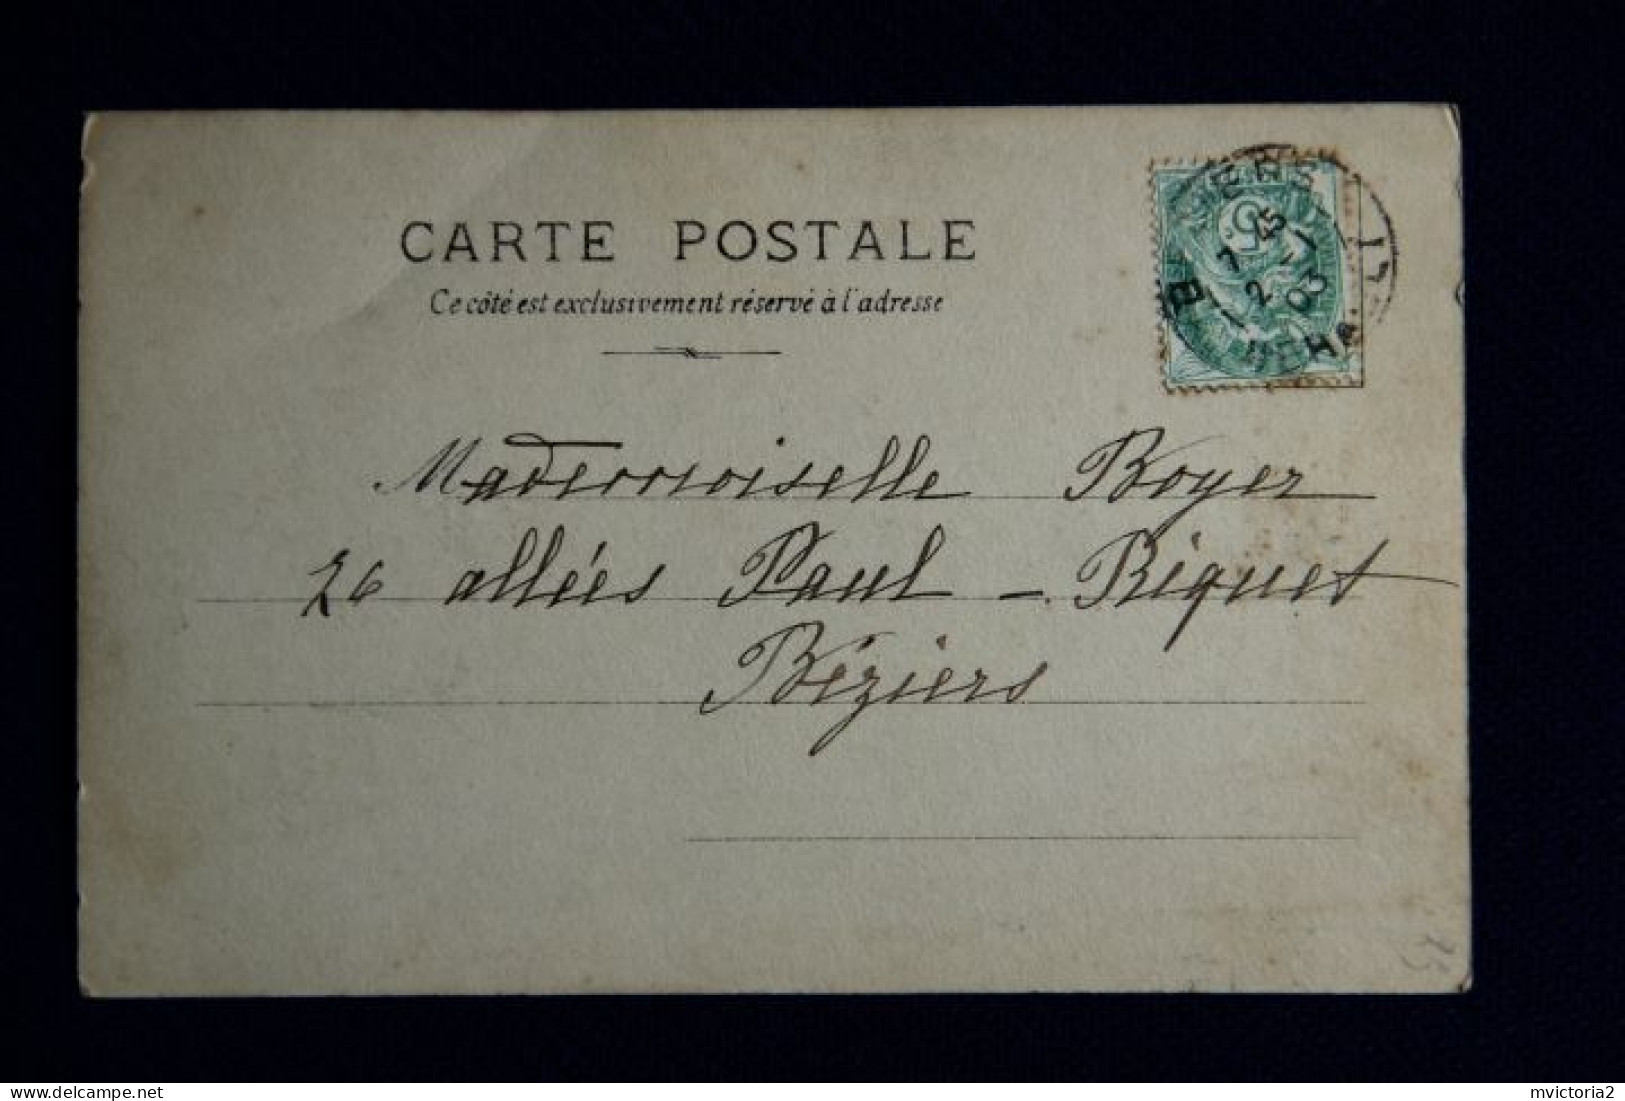 CARTE POSTALE
Ce côté est exclusivement réservé à l'adresse
5
25
2
03
Mademoiselle Boyer
26 allées Paul - Riquet
Béziers
Delcampe.net
mvictoria2